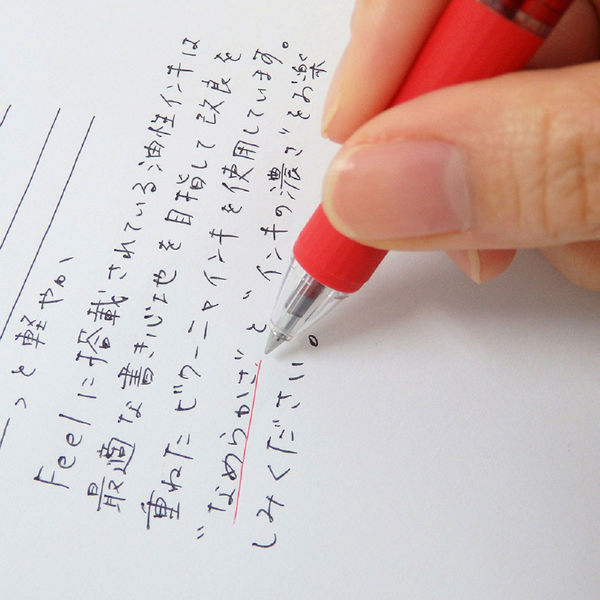 っと軽やか
Feelに搭載されている油性インキは
最適な書き心地を目指して改良を
重ねたビクーニャインキを使用しています。
“なめらかさ”と“インキの濃さ”をお楽
しみください。